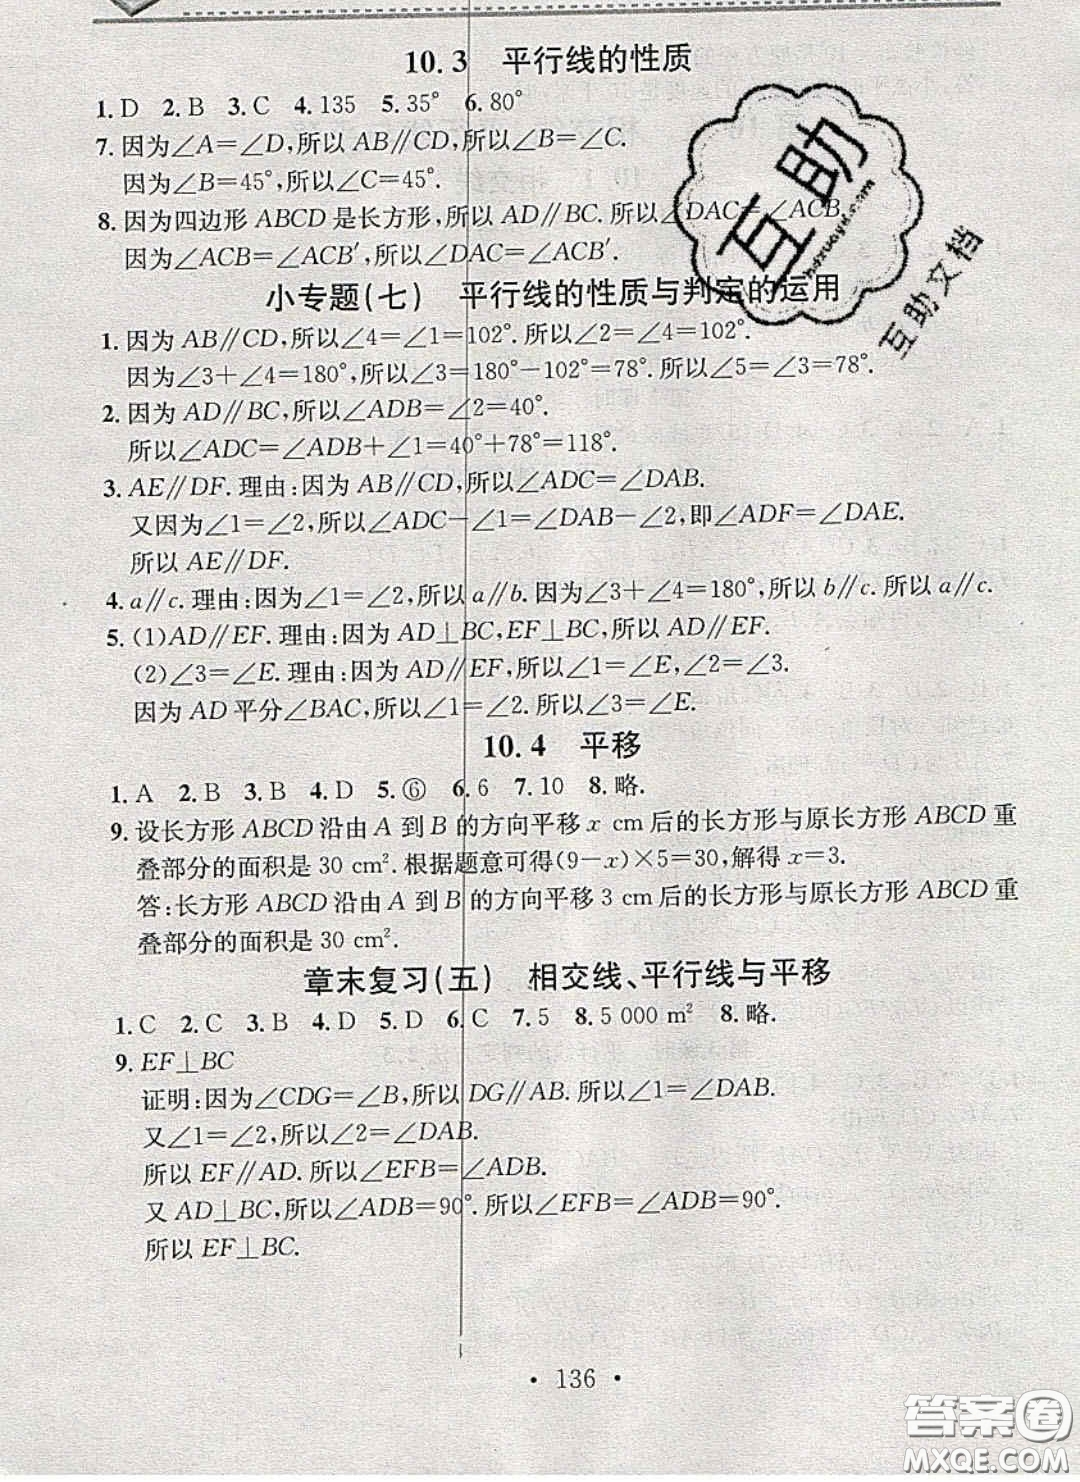 10.3　平行线的性质
1.D　2.B　3.C　4.135　5.35°　6.80°
7.因为∠A=∠D,所以AB∥CD.所以∠B=∠C.
因为∠B=45°,所以∠C=45°.
8.因为四边形ABCD是长方形,所以AD∥BC.所以∠DAC=∠ACB.
因为∠ACB=∠ACB′,所以∠DAC=∠ACB′.
小专题(七)　平行线的性质与判定的运用
1.因为AB∥CD,所以∠4=∠1=102°.所以∠2=∠4=102°.
因为∠3+∠4=180°,所以∠3=180°-102°=78°.所以∠5=∠3=78°.
2.因为AD∥BC,所以∠ADB=∠2=40°.
所以∠ADC=∠ADB+∠1=40°+78°=118°.
3.AE∥DF.理由:因为AB∥CD,所以∠ADC=∠DAB.
又因为∠1=∠2,所以∠ADC-∠1=∠DAB-∠2,即∠ADF=∠DAE.
所以AE∥DF.
4.a∥c.理由:因为∠1=∠2,所以a∥b.因为∠3+∠4=180°,所以b∥c.所以a∥c.
5.(1)AD∥EF.理由:因为AD⊥BC,EF⊥BC,所以AD∥EF.
(2)∠3=∠E.理由:因为AD∥EF,所以∠1=∠E,∠2=∠3.
因为AD平分∠BAC,所以∠1=∠2.所以∠3=∠E.
10.4　平移
1.A　2.B　3.B　4.D　5.⑥　6.6　7.10　8.略.
9.设长方形ABCD沿由A到B的方向平移x cm后的长方形与原长方形ABCD重
叠部分的面积是30 cm².根据题意可得(9-x)×5=30,解得x=3.
答:长方形ABCD沿由A到B的方向平移3 cm后的长方形与原长方形ABCD重
叠部分的面积是30 cm².
章末复习(五)　相交线、平行线与平移
1.C　2.C　3.B　4.D　5.D　6.C　7.5　8.5 000 m²　8.略.
9.EF⊥BC
证明:因为∠CDG=∠B,所以DG∥AB.所以∠1=∠DAB.
又∠1=∠2,所以∠2=∠DAB.
所以EF∥AD.所以∠EFB=∠ADB.
又AD⊥BC,所以∠ADB=90°.所以∠EFB=∠ADB=90°.
所以EF⊥BC.
· 136 ·
互助
互助文档
答案圈
MXQE.COM